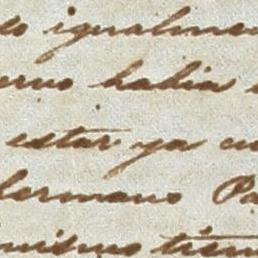 igualmen
habia
estar ya
hermano Pa
mismo tiem